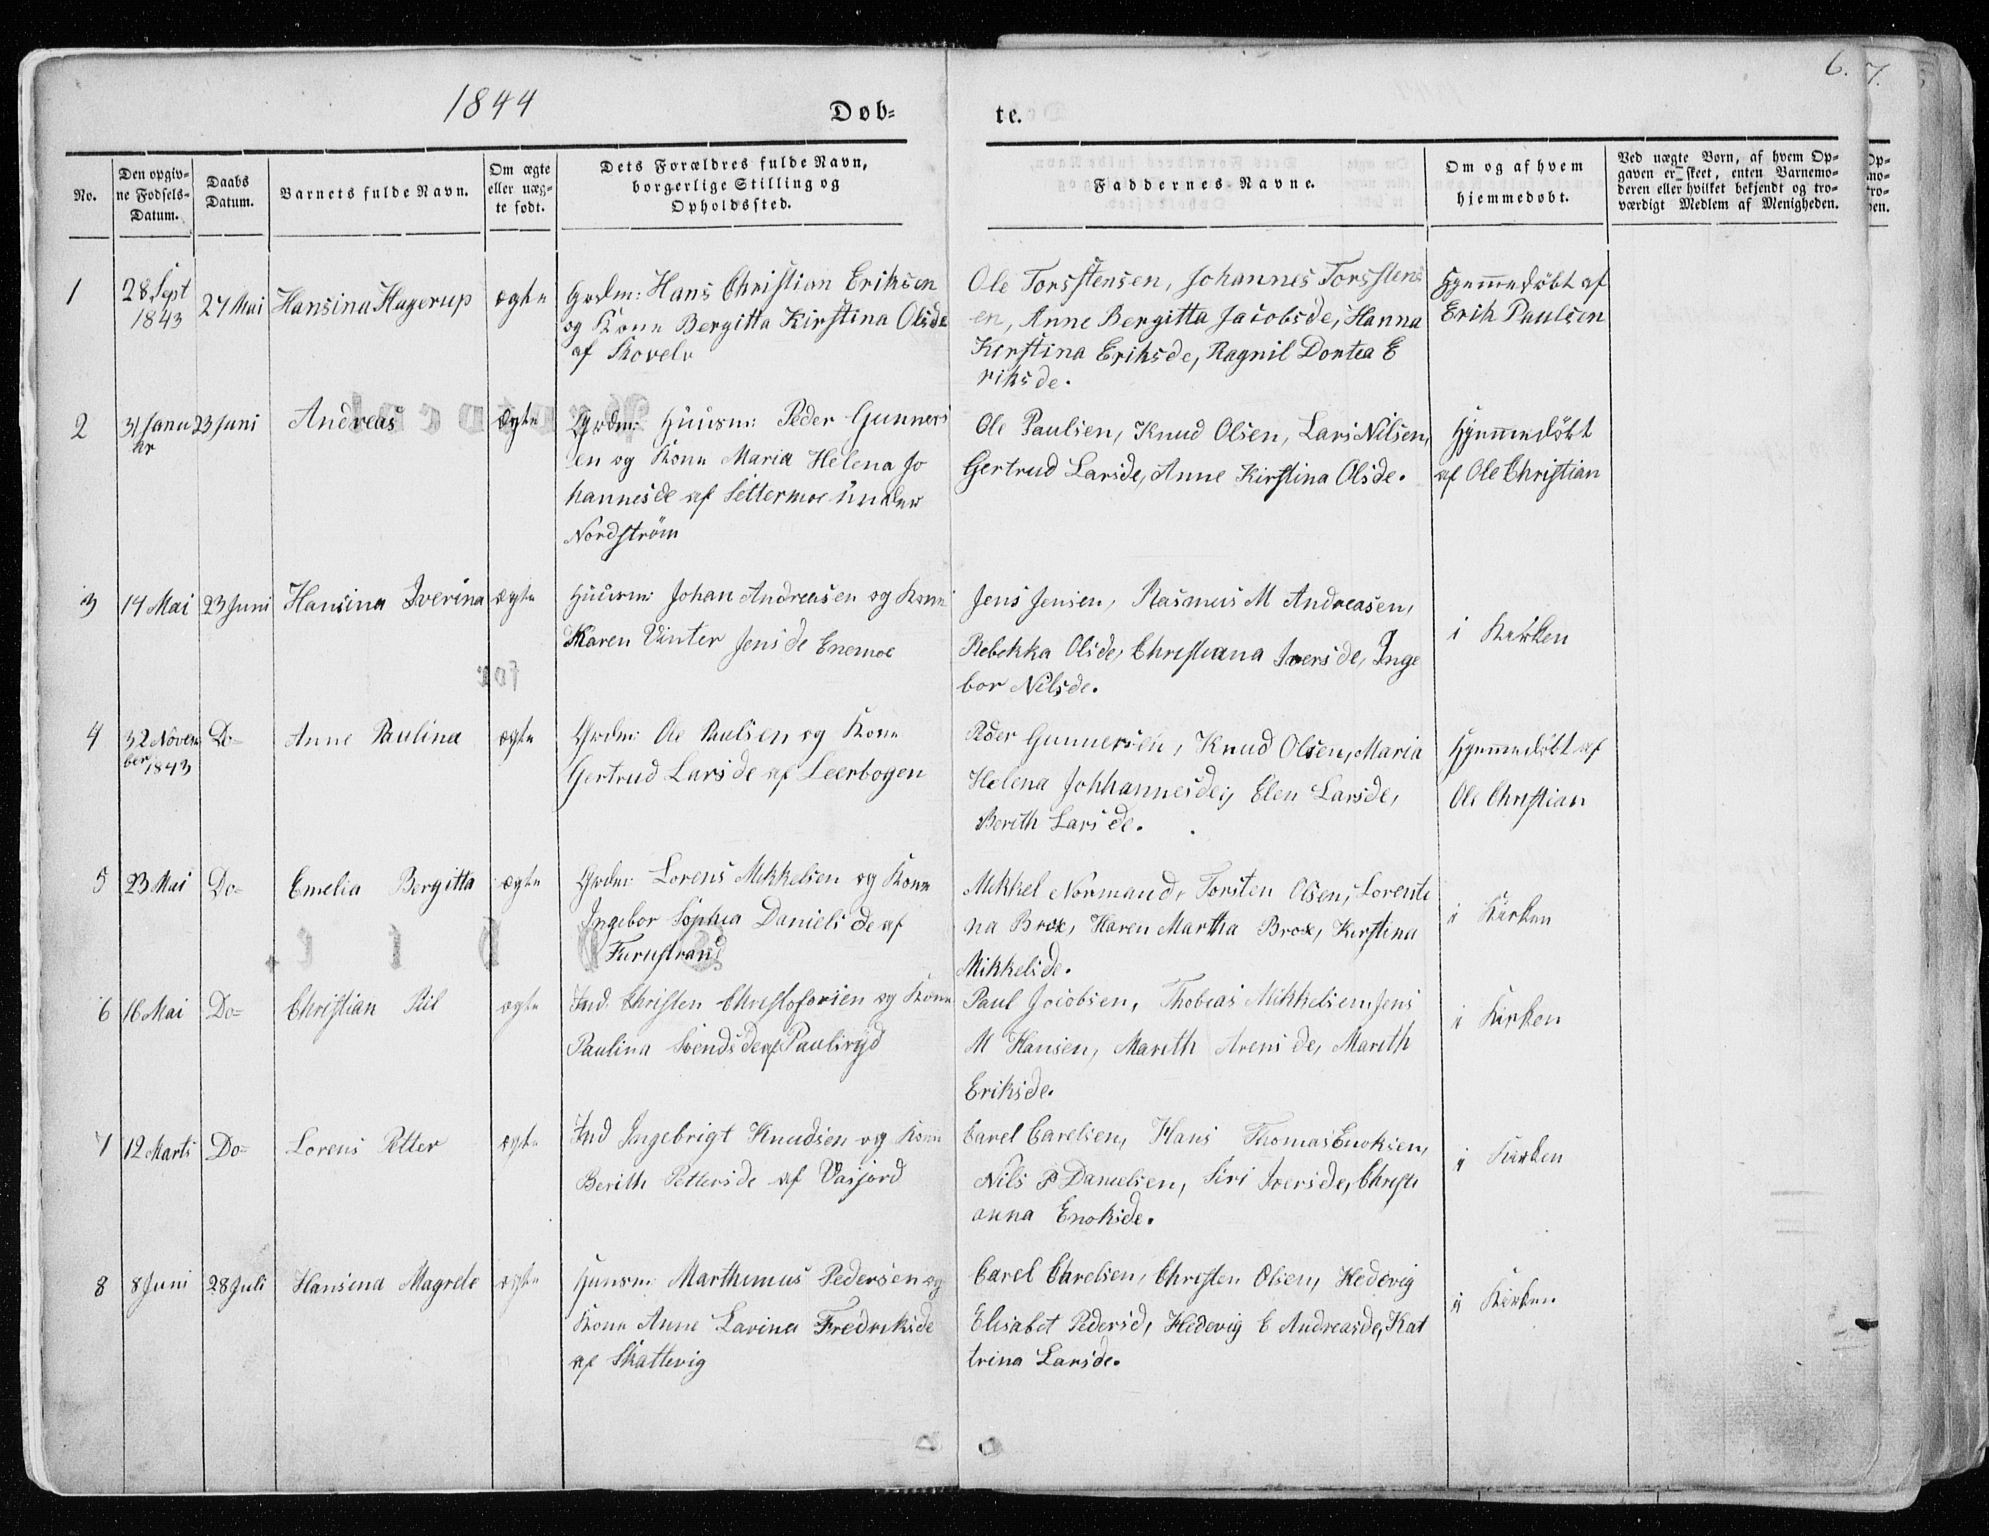 1844
Døb=
te.
6.
7.
No.
Den opgiv=
ne Fødsels=
Datum.
Daabs
Datum.
Barnets fulde Navn.
Om ægte
eller uæg=
te født.
Dets Forældres fulde Navn,
borgerlige Stilling og
Opholdssted.
Faddernes Navne.
Om og af hvem
hjemmedøbt.
Ved uægte Børn, af hvem Op=
gaven er skeet, enten Barnemo=
deren eller hvilket bekjendt og tro=
værdigt Medlem af Menigheden.
1
28 Sept
1843
27 Mai
Hansina Hagerup
ægte
Grdm: Hans Christian Eriksen
og Kone Bergitta Kirstina Olsde
af Skovelv
Ole Torsstensen, Johannes Torsstens
en, Anne Bergitta Jacobsde, Hanna
Kirstina Eriksde, Ragnil Dortea E
riksde.
Hjemmedøbt af
Erik Paulsen
2
31 Janu
ar
23 Juni
Andreas
Ægte
Grdm: Huusm: Peder Gunners
en og Kone Maria Helena Jo
hannesde af Settermoe under
Nordstrøm
Ole Paulsen, Knud Olsen, Lars Nilsen,
Gertrud Larsde, Anne Kirstina Olsde.
Hjemmedøbt
af Ole Christian
3
14 Mai
23 Juni
Hansina Iverina
ægte
Huusm: Johan Andreasen og Kone
Karen Vinter Jensde Enemoe
Jens Jensen, Rasmus M Andreasen,
Rebekka Olsde, Christiana Iversde, Inge
bor Nilsde.
i Kirken
4
32 Novem
ber 1843
Do=
Anne Paulina
ægte
Grdm: Ole Paulsen og Kone
Gertrud Larsde af Leerbogen
Peder Gunnersen, Knud Olsen, Maria
Helena Johhannesde, Elen Larsde,
Berith Larsde.
Hjemmedøbt af
Ole Christian
5
23 Mai
Do=
Emelia Bergitta
ægte
Grdm: Lorens Mikkelsen og Kone
Ingebor Sophia Danielsde af
Furustrand
Mikkel Normand, Torsten Olsen, Lorenti
na Brox, Haren Martha Brox, Kirstina
Mikkelsde.
i Kirken
6
16 Mai
Do=
Christian Piil
ægte
Ind. Christen Christofersen og Kone
Paulina Svendsde af Paulsryd
Paul Jacobsen, Thobias Mikkelsen, Jens
M Hansen, Marith Arensde, Marith
Eriksde.
i Kirken
7
12 Marts
Do=
Lorens Petter
ægte
Ind Ingebrigt Knudsen og Kone
Berith Pettersde af Vasjord
Carel Carelsen, Hans Thomas Enoksen,
Nils P Danielsen, Siri Iversde, Christi
anna Enoksde.
i Kirken
8
8 Juni
28 Juli
Hansena Magrete
ægte
Huusm: Marthinus Pedersen og
Kone Anne Lavina Fredriksde
af Skattevig
Carel Carelsen, Christen Olsen, Hedevig
Elisabet Pedersd, Hedevig E Andreasde, Kat
trina Larsde.
i Kirken